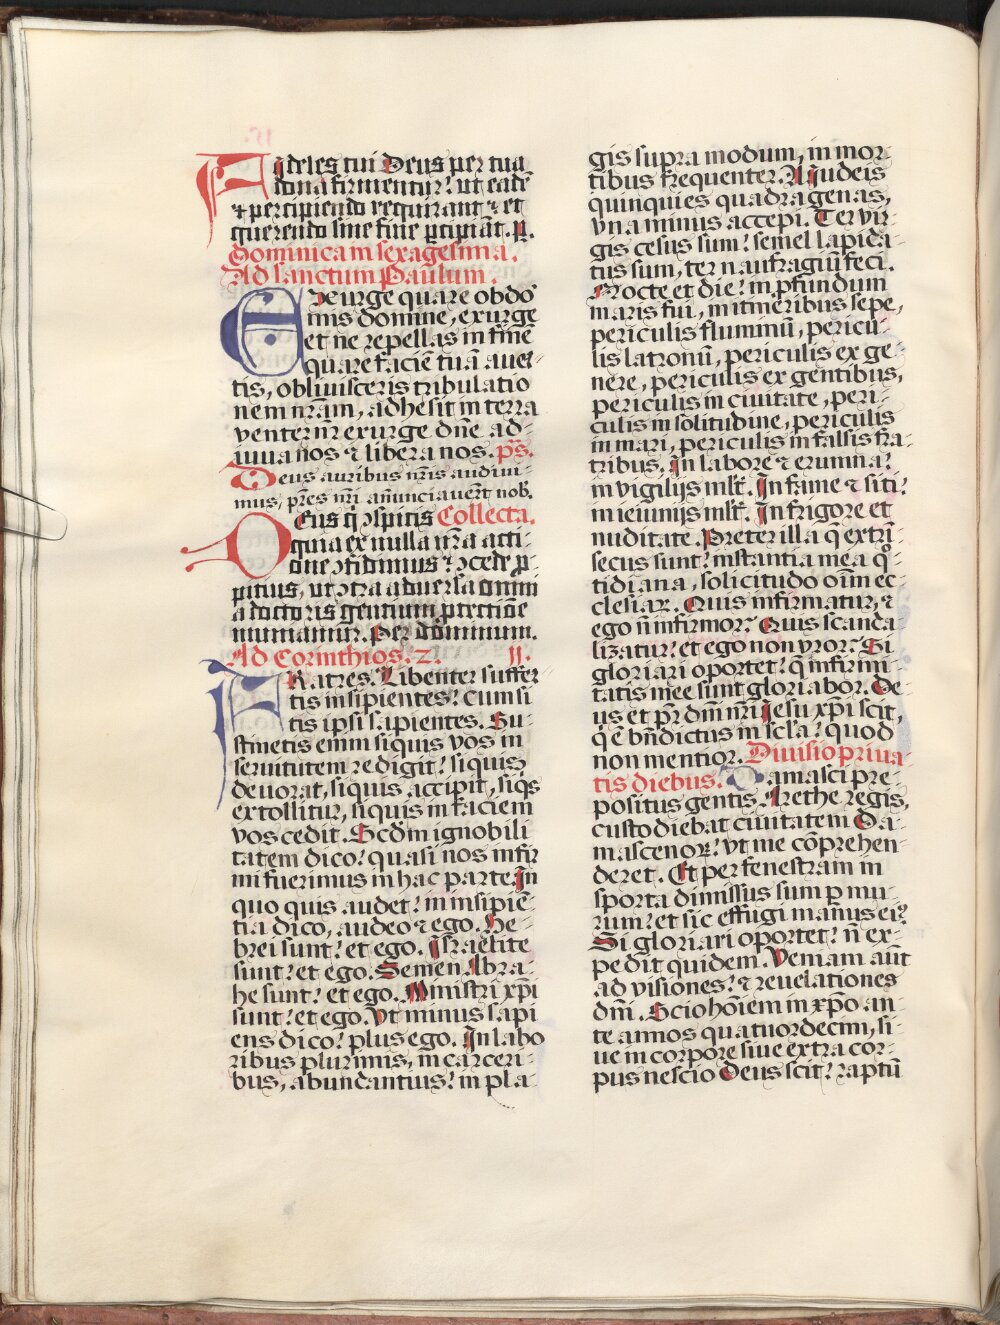 Fideles tui Deus per tua
dona firmentur: ut eadē
⁊ percipiendo requirant ⁊ et
querendo sine fine ꝑcipiāt. P.
Dominica in sexagesima.
Ad sanctum Paulum.
Exurge quare obdo
mis domine, exurge
et ne repellas in finē
quare faciē tuā auer-
tis, obliuisceris tribulatio
nem nr̄am, adhesit in terra
venter nr̄ exurge dn̄e ad-
iuua nos ⁊ libera nos. ps̄.
Deus auribus nr̄is audiui-
mus, pr̄es nr̄i an̄unciauerūt nob̄.
Deus q̄ ꝯspicis Collecta.
quia ex nulla nr̄a acti-
one ꝯfidimus ⁊ ꝯcede ꝓ-
pitius, ut ꝯtra aduersa omni
a doctoris gentium ꝓtectiōe
muniamur. Per dominum.
Ad Corinthios. 2. 11.
Fratres. Libenter suffer-
tis insipientes: cum si
tis ipsi sapientes. Su-
stinetis enim siquis vos in
seruitutem redigit: siquis
deuorat, siquis accipit, siq̄s
extollitur, siquis in faciem
vos cedit. Scd̄m ignobili
tatem dico: quasi nos infir
mi fuerimus in hac parte. In
quo quis audet: in insipiē-
tia dico, audeo ⁊ ego. He-
brei sunt: et ego. Israelite
sunt: et ego. Semen Abra-
he sunt: et ego. Ministri xp̄i
sunt: et ego. Vt minus sapi
ens dico: plus ego. In labo
ribus plurimis, in carceri-
bus, abundantius: in pla-
gis supra modum, in mor-
tibus frequenter. A iudeis
quinquies quadragenas,
vna minus accepi. Ter vir-
gis cesus sum: semel lapida-
tus sum, ter naufragiū feci.
Nocte et die: in ꝓfundum
maris fui, in itineribus sepe,
periculis fluminū, pericu-
lis latronū, periculis ex ge-
nere, periculis ex gentibus,
periculis in ciuitate, peri-
culis in solitudine, periculis
in mari, periculis in falsis fra-
tribus. In labore ⁊ erumna:
in vigilijs ml̄t. In fame ⁊ siti:
in ieiunijs ml̄t. In frigore et
nuditate. Preter illa q̄ extrī-
secus sunt: instantia mea q̊-
tidiana, solicitudo oīm ec-
clesiaꝝ. Quis infirmatur, ⁊
ego n̄ infirmor: Quis scanda
lizatur: et ego non vror: Si
gloriari oportet: q̄ infirmi-
tatis mee sunt gloriabor. De-
us et pr̄ dn̄i nr̄i Iesu xp̄i scit,
q̄ ē bn̄dictus in scl̄a: quod
non mentior. Diuisio priua-
tis diebus. Damasci pre-
positus gentis Arethe regis,
custodiebat ciuitatem Da-
mascenoꝝ: vt me cōprehen-
deret. Et per fenestram in
sporta dimissus sum ꝑ mu-
rum: et sic effugi manus eiꝰ.
Si gloriari oportet: n̄ ex-
pedit quidem. Veniam aūt
ad visiones: ⁊ reuelationes
dn̄i. Scio hoīem in xp̄o an-
te annos quatuordecim, si-
ue in corpore siue extra cor-
pus nescio Deus scit: raptū